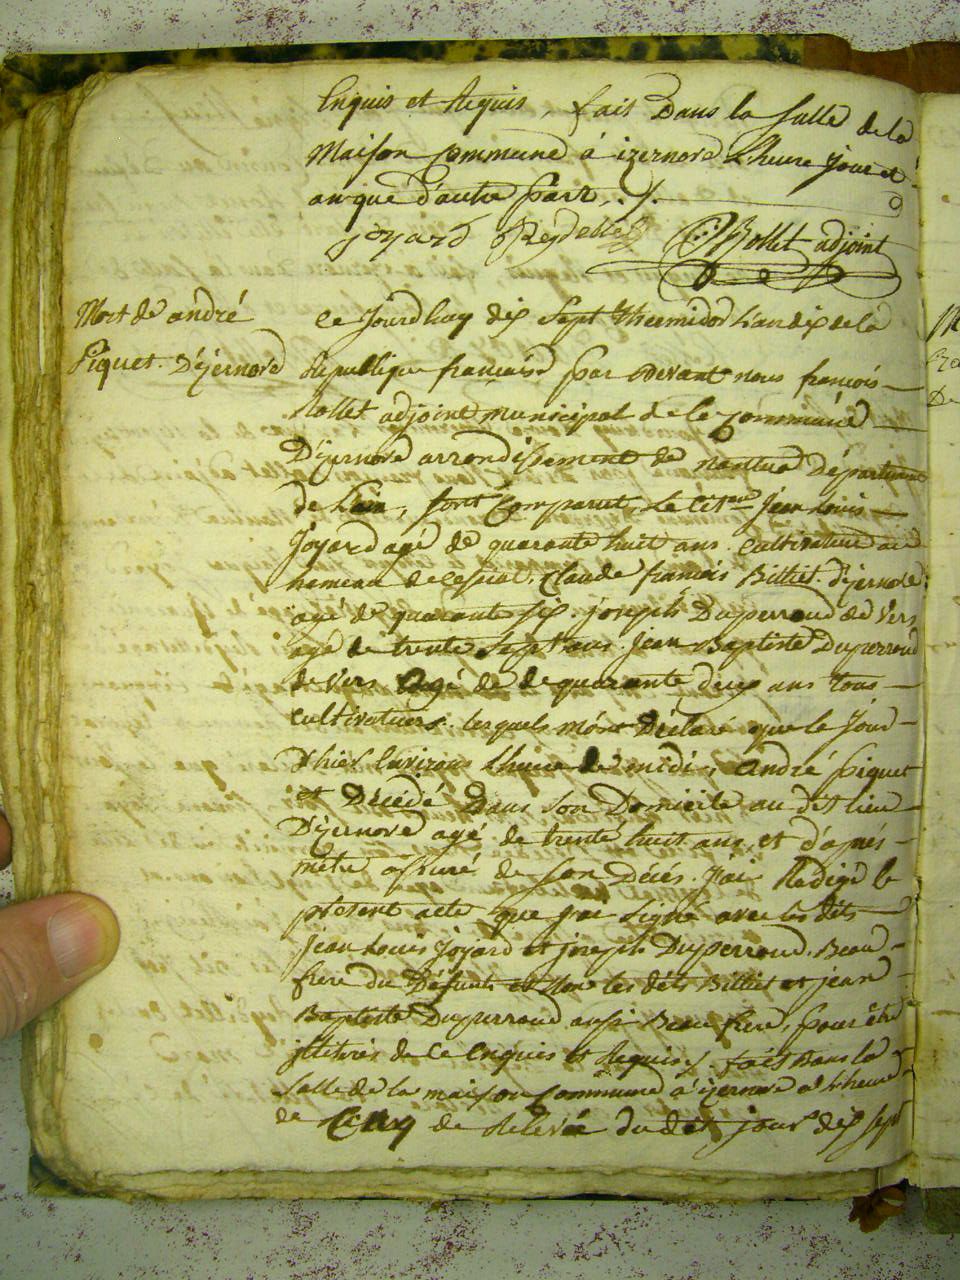 Enquis et Requis, fait Dans la Salle de la
Maison Commune à izernore L'heure jour et
an que d'autre part ./.
joyard Reydellet CfRollet adjoint
Mort de andré
Piquet. D'ijernore
Ce Jourdhuy dix Sept Thermidor L'an dix de la
République française par Devant nous françois
Rollet adjoint municipal de la Commune
D'ijernore arrondissement de nantua Département
de Lain, sont Comparut, Le Cit.en Jean Louis
Joyard agé de quarante huit ans. Cultivateur au
hameau de Claude françois Billiet. d'ijernore
agé de quarante six. joseph Duperroud de Vers
agé de trente Sept ans. Jean Baptiste Duperroud
de Vers Agé de de quarante deux ans tous
Cultivateurs. lesquels m'ont Déclaré que le Jour
D'hier Environs Lheure de midi, André piquet
et Décédé Dans Son Domicile au det lieu
D'ijernore agé de trente huit ans, et d'aprés
mêtre assuré de Son Décés. J'ai Rédigé le
present acte que jai Signé avec les déts
jean Louis Joyard et joseph Duperroud. Beau
frere du Défunts et Non les déts Billiet et jean
Baptiste Duperroud aussi Beau frere, pour être
jlletérés de Ce Enquis et Requis. fait Dans la
Salle de la maison Commune à ijernore à Lheure
de Cinq de Relevée du det jour dix sept